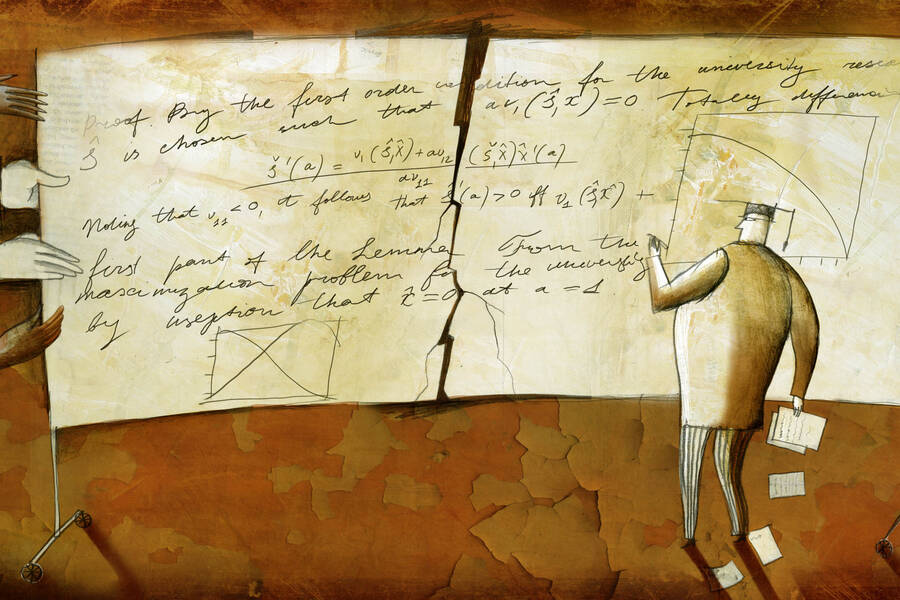 Proof. By the first order condition for the uneversity resea
ξ̂ is chosen such that av₁(ξ̂,x)=0 Totalley differencia
ξ̌'(a) = v₁(ξ̂,x̂)+av₁₂ (ξ̌,x̂)x̂'(a)
av₁₁
Noting that v₁₁<0, it follows that ξ̂'(a)>0 iff v₁(ξ̂,x̂) +
first part of the Lemma From the
mascimization problem fo the uneversify
by inseption that x̂=0 at a=1